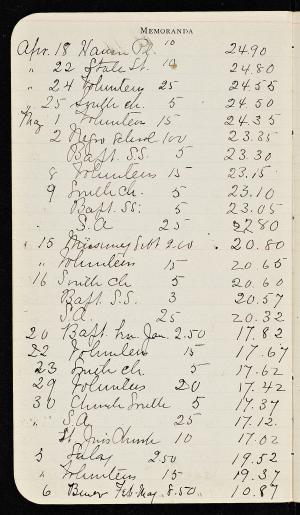 MEMORANDA
Apr. 18 Haven Pl. 10 24.90
" 22 State St. 10 24.80
" 24 Volunteers 25 24.55
" 25 South ch. 5 24.50
May 1 Volunteers 15 24.35
2 Negro School 100 23.35
Bapt. S.S. 5 23.30
8 Volunteers 15 23.15
9 South Ch. 5 23.10
Bapt. SS. 5 23.05
S.A 25 22.80
" 15 Missionary 2.00 20.80
" Volunteers 15 20.65
16 South Ch 5 20.60
Bapt. S.S. 3 20.57
S.A. 25 20.32
20 Bapt. Jan. 2.50 17.82
22 Volunteers 15 17.67
23 South ch. 5 17.62
29 Volunteers 20 17.42
30 Church South 5 17.37
" S.A 25 17.12
St. Church 10 17.02
3 Salary 2.50 19.52
" Volunteers 15 19.37
6 Feb-May 8.50 10.87